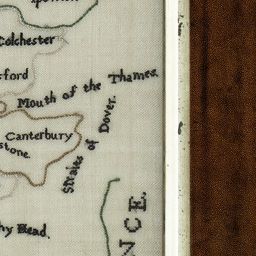 Colchester
Mouth of the Thames.
Canterbury
stone.
Straits of Dover.
Head.
NCE.